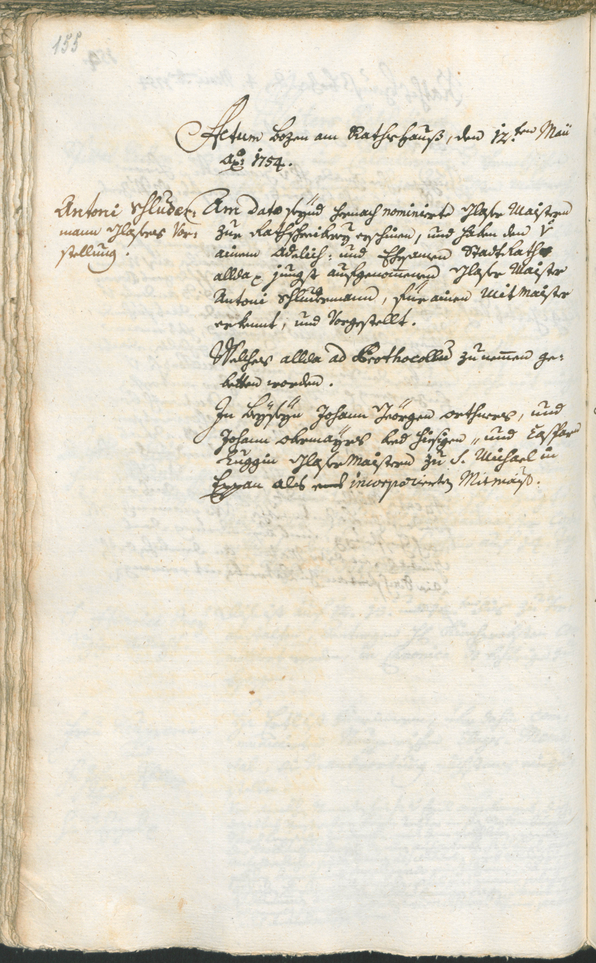 155
Actum Bozen am Rathshauß, den 12.ten Maii
Ao: 1754.
Antoni Schluder-
mann Glasers Vor-
stellung.
Am Dato seynd hernach nominierte Glaser Maistern
zur Rathschreiberey erschinen, und haben den V
ainem Adelich: und Ehrsamen Stadt Rath
allda jüngst aufgenommenen Glaser Maister
Antoni Schludermann, für ainen Mitmaister
erkennt, und Vorgestellt.
Welches allda ad Prothocollum zu nemen ge-
betten worden.
In beyseyn Johann Jeörgen orthners, und
Johann obermayrs bed hiesigen, und Caspar
Luggin Glaser Maistern zu S. Michael in
Eppan als incorporierten Mitmaist.